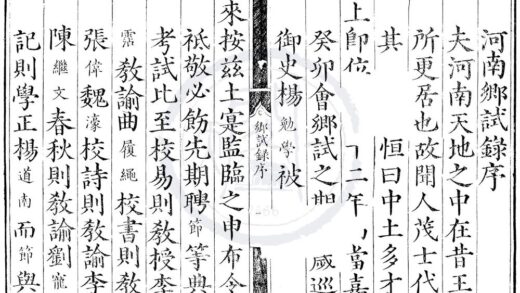 河南鄉試錄序
夫河南天地之中在昔王
所更居也故聞人茂士代
其 恒曰中土多才
上卽位 二年 當嘉
癸卯會鄉試之期 巡
御史楊勉學被
鄉試錄序
來按茲土寔監臨之申布令
祇敬必飭先期聘節等典
考試比至校易則敎授李
敎諭曲履繩校書則敎
張偉魏濠校詩則敎諭李
陳繼文春秋則敎諭劉寵
記則學正楊道南而節與